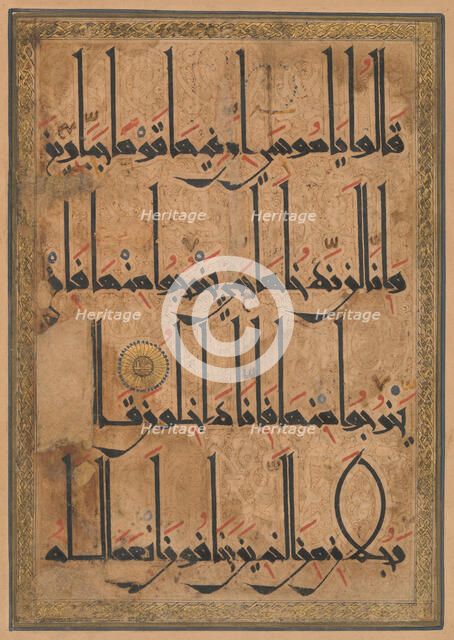 قالوا ياموسى ان فيها قوما جبارين
وانا لن ندخلها حتى يخرجوا منها فان
يخرجوا منها فانا داخلون قال
رجلان من الذين يخافون انعم الله
Heritage Heritage
Heritage Heritage
Heritage Heritage
Heritage Heritage